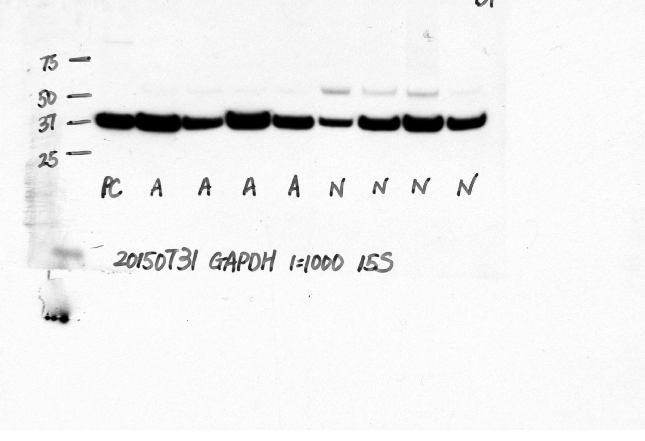 75
50
37
25
PC A A A A N N N N
20150731 GAPDH 1:1000 15S